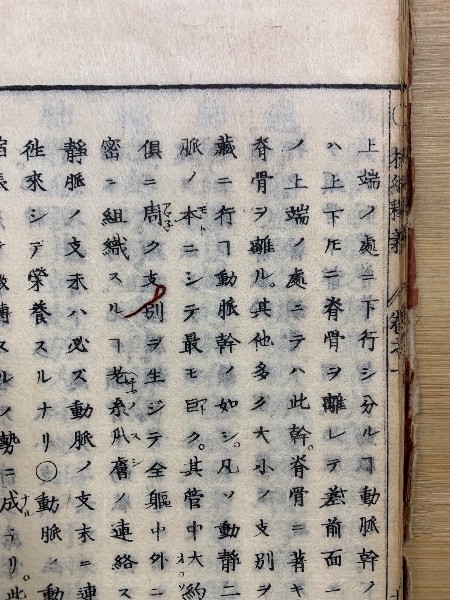 上端ノ處ニ下行シ分ルヿ動脈幹ノ
ハ上下𪜈ニ脊骨ヲ離レテ差前面ニ
ノ上端ノ處ニテハ此幹。脊骨ニ著キ
脊骨ヲ離ル。其他多ク大小ノ支別ヲ
藏ニ行ヿ動脈幹ノ如シ。凡ソ動靜二
脈ノ本ニシテ最モ巨ク。其管中大約
俱ニ周ク支別ヲ生ジテ全軀中外ニ
密ニ組織スルヿ老糸瓜膚ノ連絡ス
靜脈ノ支末ハ必ズ動脈ノ支末ニ連
徃來シテ榮養スルナリ〇動脈ノ動
縮張スルノ勢ニ成ナリ。此